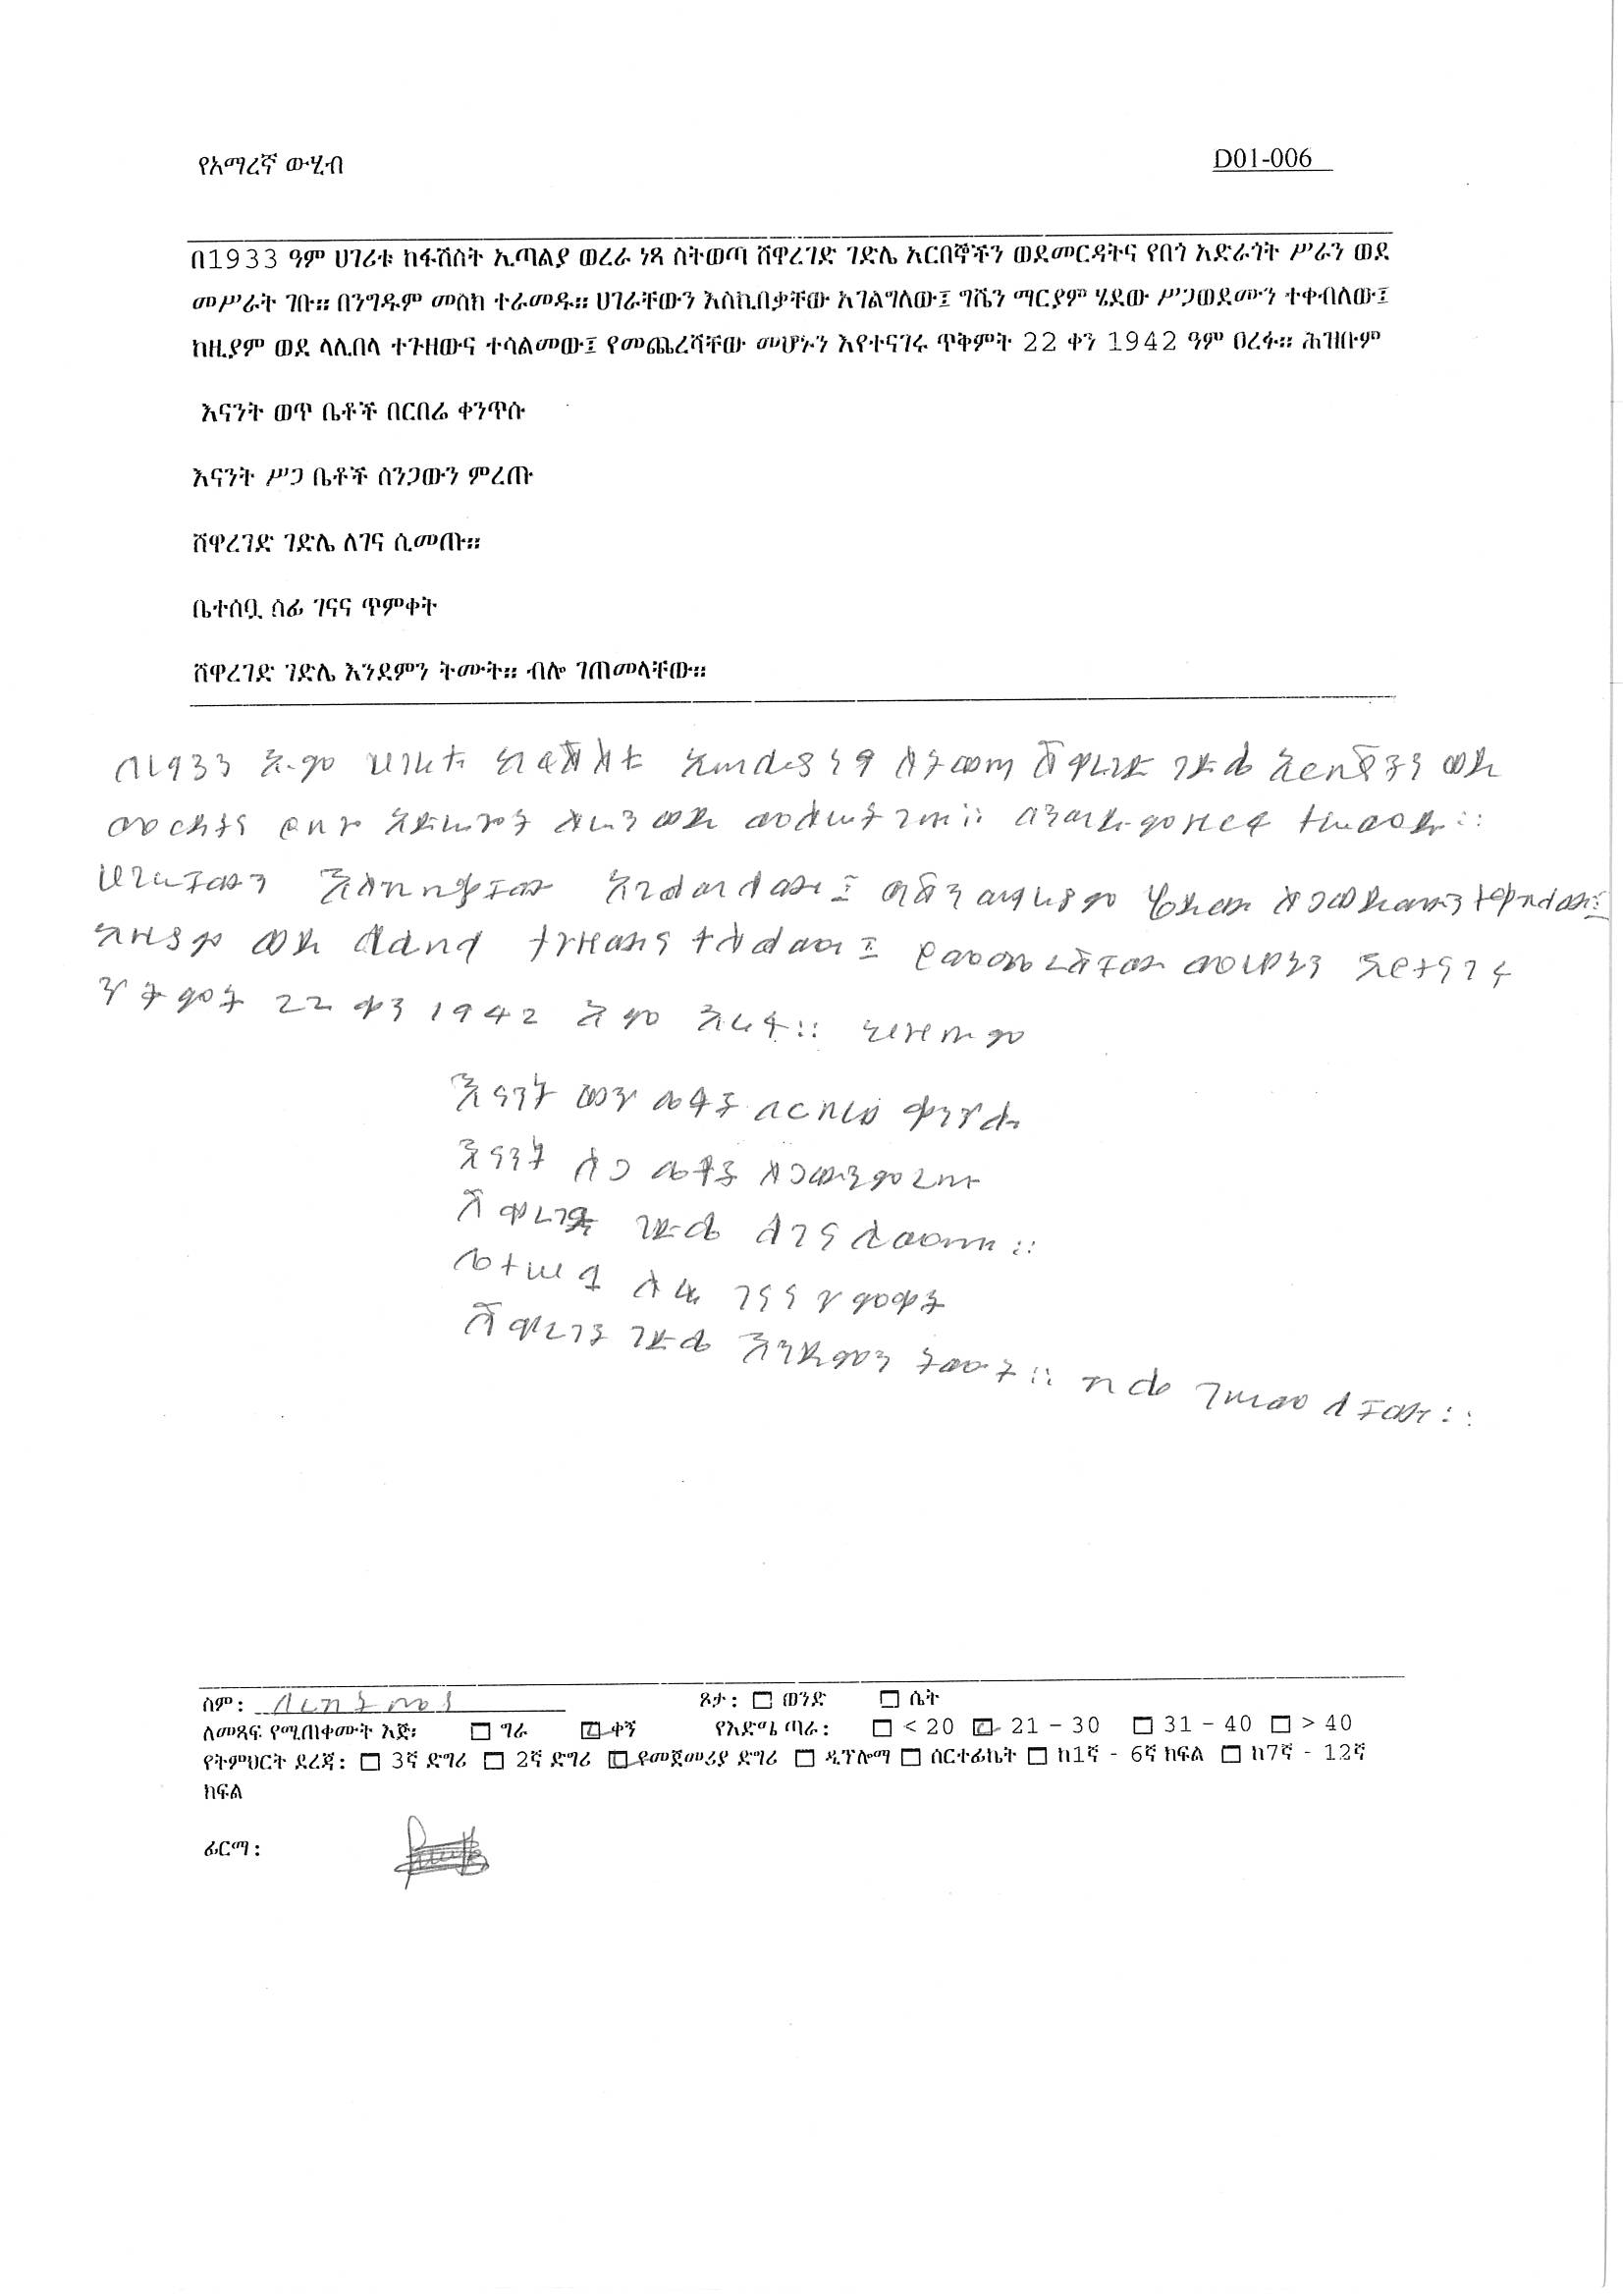 የአማረኛ ውሂብ
D01-006
በ1933 ዓም ሀገሪቱ ከፋሽስት ኢጣልያ ወረራ ነጻ ስትወጣ ሸዋረገድ ገድሌ አርበኞችን ወደመርዳትና የበጎ አድራጎት ሥራን ወደ
መሥራት ገቡ። በንግዱም መስክ ተራመዱ። ሀገራቸውን እስኪበቃቸው አገልግለው፤ ግሼን ማርያም ሄደው ሥጋወደሙን ተቀብለው፤
ከዚያም ወደ ላሊበላ ተጉዘውና ተሳልመው፤ የመጨረሻቸው መሆኑን እየተናገሩ ጥቅምት 22 ቀን 1942 ዓም ዐረፉ። ሕዝቡም
እናንት ወጥ ቤቶች በርበሬ ቀንጥሱ
እናንት ሥጋ ቤቶች ሰንጋውን ምረጡ
ሸዋረገድ ገድሌ ለገና ሲመጡ።
ቤተሰቧ ሰፊ ገናና ጥምቀት
ሸዋረገድ ገድሌ እንደምን ትሙት። ብሎ ገጠመላቸው።
በ1933 እ.ም ሀገሪቱ ከፋሽስት ነፃ ስትወጣ ሸዋረገድ ገድሌ ወደ
መርዳትና የበጎ አድራጎት ስራን ወደ መስራት ገቡ። ተራመዱ።
ሀገራቸውን እስኪበቃቸው አገልግለው፤ ግሸን ማርያም ሄደው ስጋወደሙን ተቀብለው፤
ከዚያም ወደ ላሊበላ ተጉዘውና ተሳልመው፤ የመጨረሻቸው መሆኑን እየተናገሩ
22 ቀን 1942 እ ም እረፉ።
እናንት ወጥ ቤቶች በርበሬ ቀንጥሱ
እናንት ስጋ ቤቶች ስጋውን ምረጡ
ሸዋረገድ ገድሌ ለገና ሲመጡ።
ቤተሠቧ ሰፊ ገናና ጥምቀት
ሸዋረገድ ገድሌ እንደምን ትሙት። ብሎ ገጠመላቸው።
ስም:
ጾታ: ወንድ ሴት
ለመጻፍ የሚጠቀሙት እጅ፡ ግራ ቀኝ የእድሜ ጣራ: < 20 21 – 30 31 – 40 > 40
የትምህርት ደረጃ: 3ኛ ድግሪ 2ኛ ድግሪ የመጀመሪያ ድግሪ ዲፕሎማ ሰርተፊኬት ከ1ኛ - 6ኛ ክፍል ከ7ኛ - 12ኛ
ክፍል
ፊርማ: